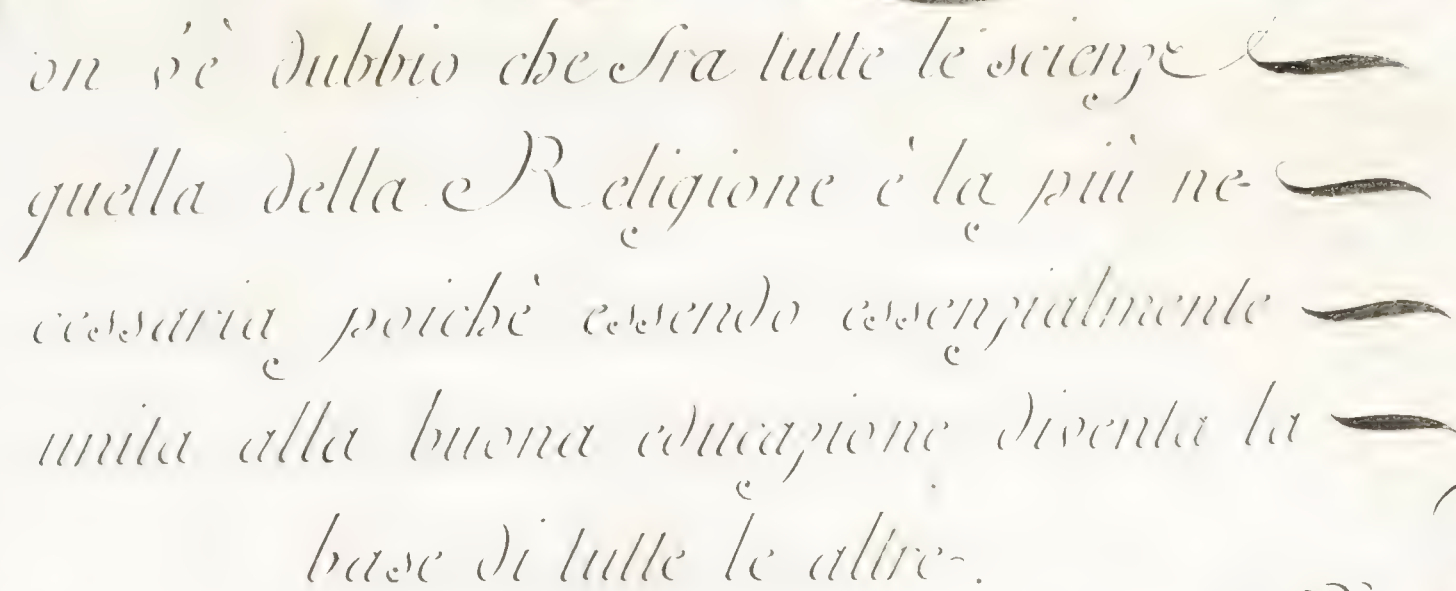 on v'è dubbio che fra tutte le scienze
quella della Religione è la più ne-
cessaria poichè essendo essenzialmente
unita alla buona educazione diventa la
base di tutte le altre.